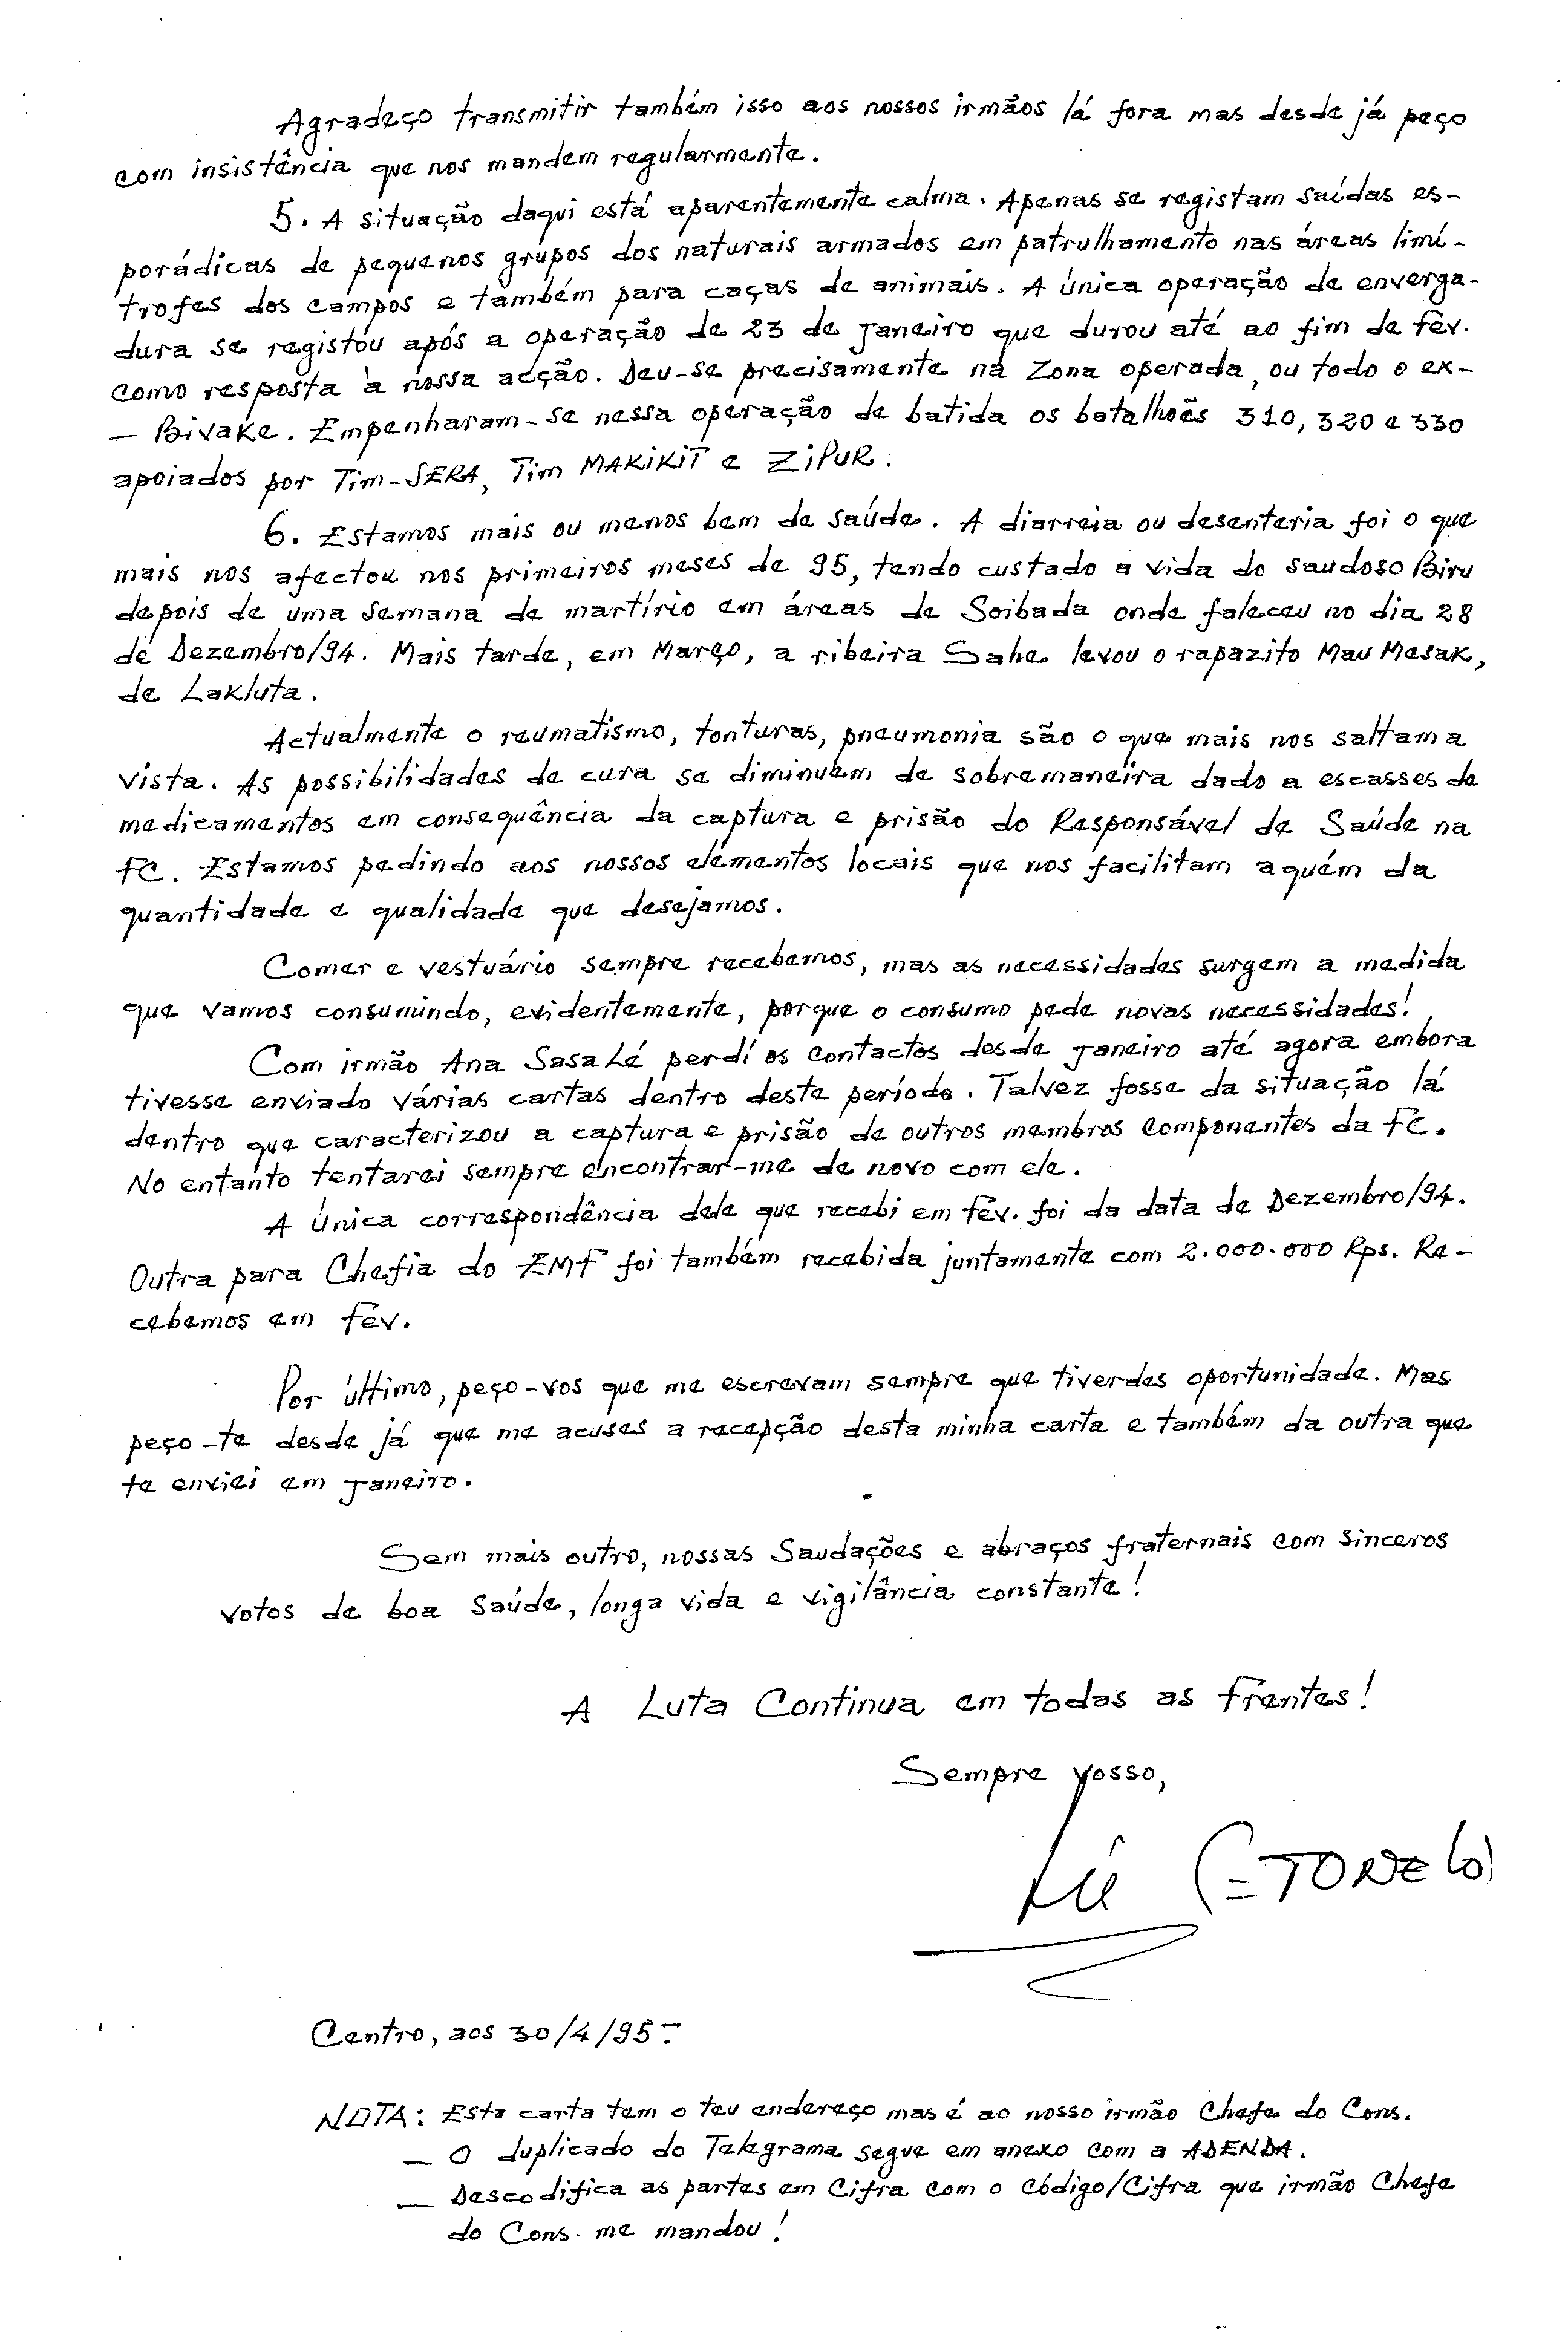 Agradeço transmitir também isso aos nossos irmãos lá fora mas desde já peço
com insistência que nos mandem regularmente.
5. A situação daqui está aparentemente calma. Apenas se registam saídas es-
porádicas de pequenos grupos dos naturais armados em patrulhamento nas áreas limí-
trofes dos campos e também para caças de animais. A única operação de enverga-
dura se registou após a operação de 23 de Janeiro que durou até ao fim de Fev.
como resposta à nossa acção. Deu-se precisamente na Zona operada, ou todo o ex-
- Bivake. Empenharam-se nessa operação de batida os batalhões 310, 320 e 330
apoiados por Tim-SERA, Tim MAKIKIT e ZIPUR.
6. Estamos mais ou menos bem de saúde. A diarreia ou desenteria foi o que
mais nos afectou nos primeiros meses de 95, tendo custado a vida do saudoso Biru
depois de uma semana de martírio em áreas de Soibada onde faleceu no dia 28
de Dezembro/94. Mais tarde, em Março, a ribeira Sahe levou o rapazito Mau Mesak,
de Lakluta.
Actualmente o reumatismo, tonturas, pneumonia são o que mais nos saltam a
vista. As possibilidades de cura se diminuem de sobremaneira dado a escasses de
medicamentos em consequência da captura e prisão do Responsável de Saúde na
FC. Estamos pedindo aos nossos elementos locais que nos facilitam aquém da
quantidade e qualidade que desejamos.
Comer e vestuário sempre recebemos, mas as necessidades surgem a medida
que vamos consumindo, evidentemente, porque o consumo pede novas necessidades!
Com irmão Ana Sasa Lé perdí os contactos desde Janeiro até agora embora
tivesse enviado várias cartas dentro deste período. Talvez fosse da situação lá
dentro que caracterizou a captura e prisão de outros membros componentes da FC.
No entanto tentarei sempre encontrar-me de novo com ele.
A única correspondência dele que recebi em Fev. foi da data de Dezembro/94.
Outra para Chefia do EMF foi também recebida juntamente com 2.000.000 Rps. Re-
cebemos em Fev.
Por último, peço-vos que me escrevam sempre que tiverdes oportunidade. Mas
peço-te desde já que me acuses a recepção desta minha carta e também da outra que
te enviei em Janeiro.
Sem mais outro, nossas Saudações e abraços fraternais com sinceros
votos de boa saúde, longa vida e vigilância constante!
A Luta Continua em todas as Frentes!
Sempre vosso,
(=TONELO)
Centro, aos 30/4/95.-
NOTA: Esta carta tem o teu endereço mas é ao nosso irmão Chefe do Cons.
- O duplicado do Telegrama segue em anexo com a ADENDA.
- Descodifica as partes em Cifra com o Código/Cifra que irmão Chefe
do Cons. me mandou!